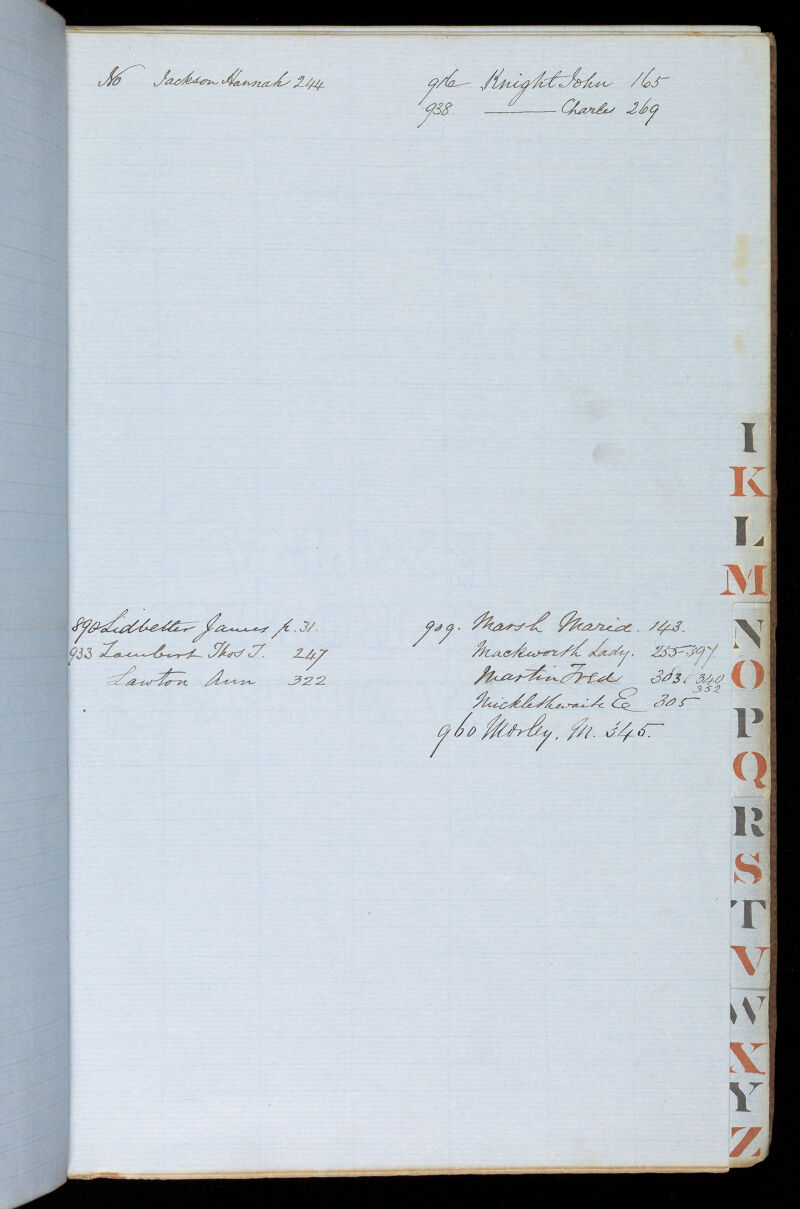 No Jackson Hannah 244
916 Knight John 165
938. ——— Charles 269
890 Lidbetter James p. 31.
933 Lambert Thos T. 247
Lawton Ann 322
909. Marsh Maria. 143.
Mackworth Lady. 255-397.
Martin Fred 303. 340
352
Micklethwaite E 305
960 Morley, M. 345.
I
K
L
M
N
O
P
Q
R
S
T
V
W
X
Y
Z